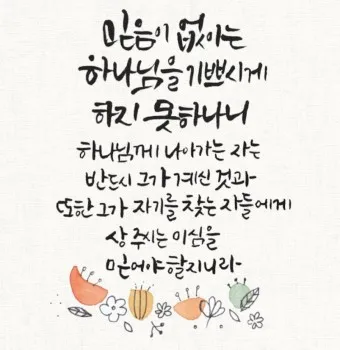 믿음이 없이는
하나님을 기쁘시게
하지 못하나니
하나님께 나아가는 자는
반드시 그가 계신 것과
또한 그가 자기를 찾는 자들에게
상 주시는 이심을
믿어야 할지니라